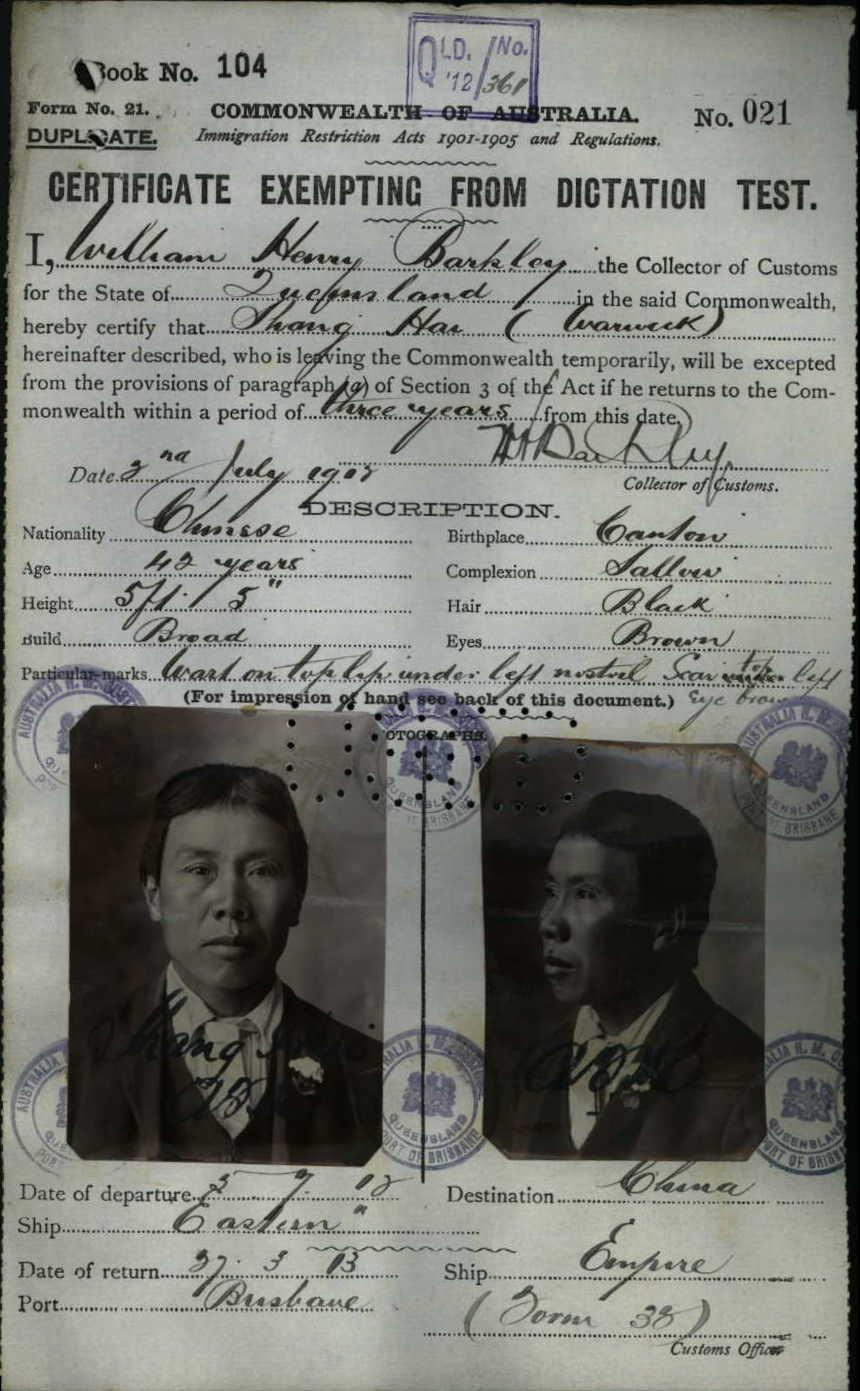 Book No. 104
QLD. No.
'12/361
Form No. 21. COMMONWEALTH OF AUSTRALIA. No. 021
DUPLICATE. Immigration Restriction Acts 1901-1905 and Regulations.
CERTIFICATE EXEMPTING FROM DICTATION TEST.
I, William Henry Barkley the Collector of Customs
for the State of Queensland in the said Commonwealth,
hereby certify that Shang Hai (Warwick)
hereinafter described, who is leaving the Commonwealth temporarily, will be excepted
from the provisions of paragraph (a) of Section 3 of the Act if he returns to the Com-
monwealth within a period of three years from this date.
WHBarkley
Date 2nd July 1912 Collector of Customs.
DESCRIPTION.
Nationality Chinese Birthplace Canton
Age 42 years Complexion Sallow
Height 5ft. 5" Hair Black
Build Broad Eyes Brown
Particular marks Wart on top lip under left nostril Scar top left
(For impression of hand see back of this document.) Eye brow
PHOTOGRAPHS.
AUSTRALIA H. M. CUSTOMS
QUEENSLAND
PORT OF BRISBANE
Shang Hai
Date of departure 5 7 12 Destination China
Ship Eastern
Date of return 27. 3 13 Ship Empire
Port Brisbane (Form 32)
Customs Officer